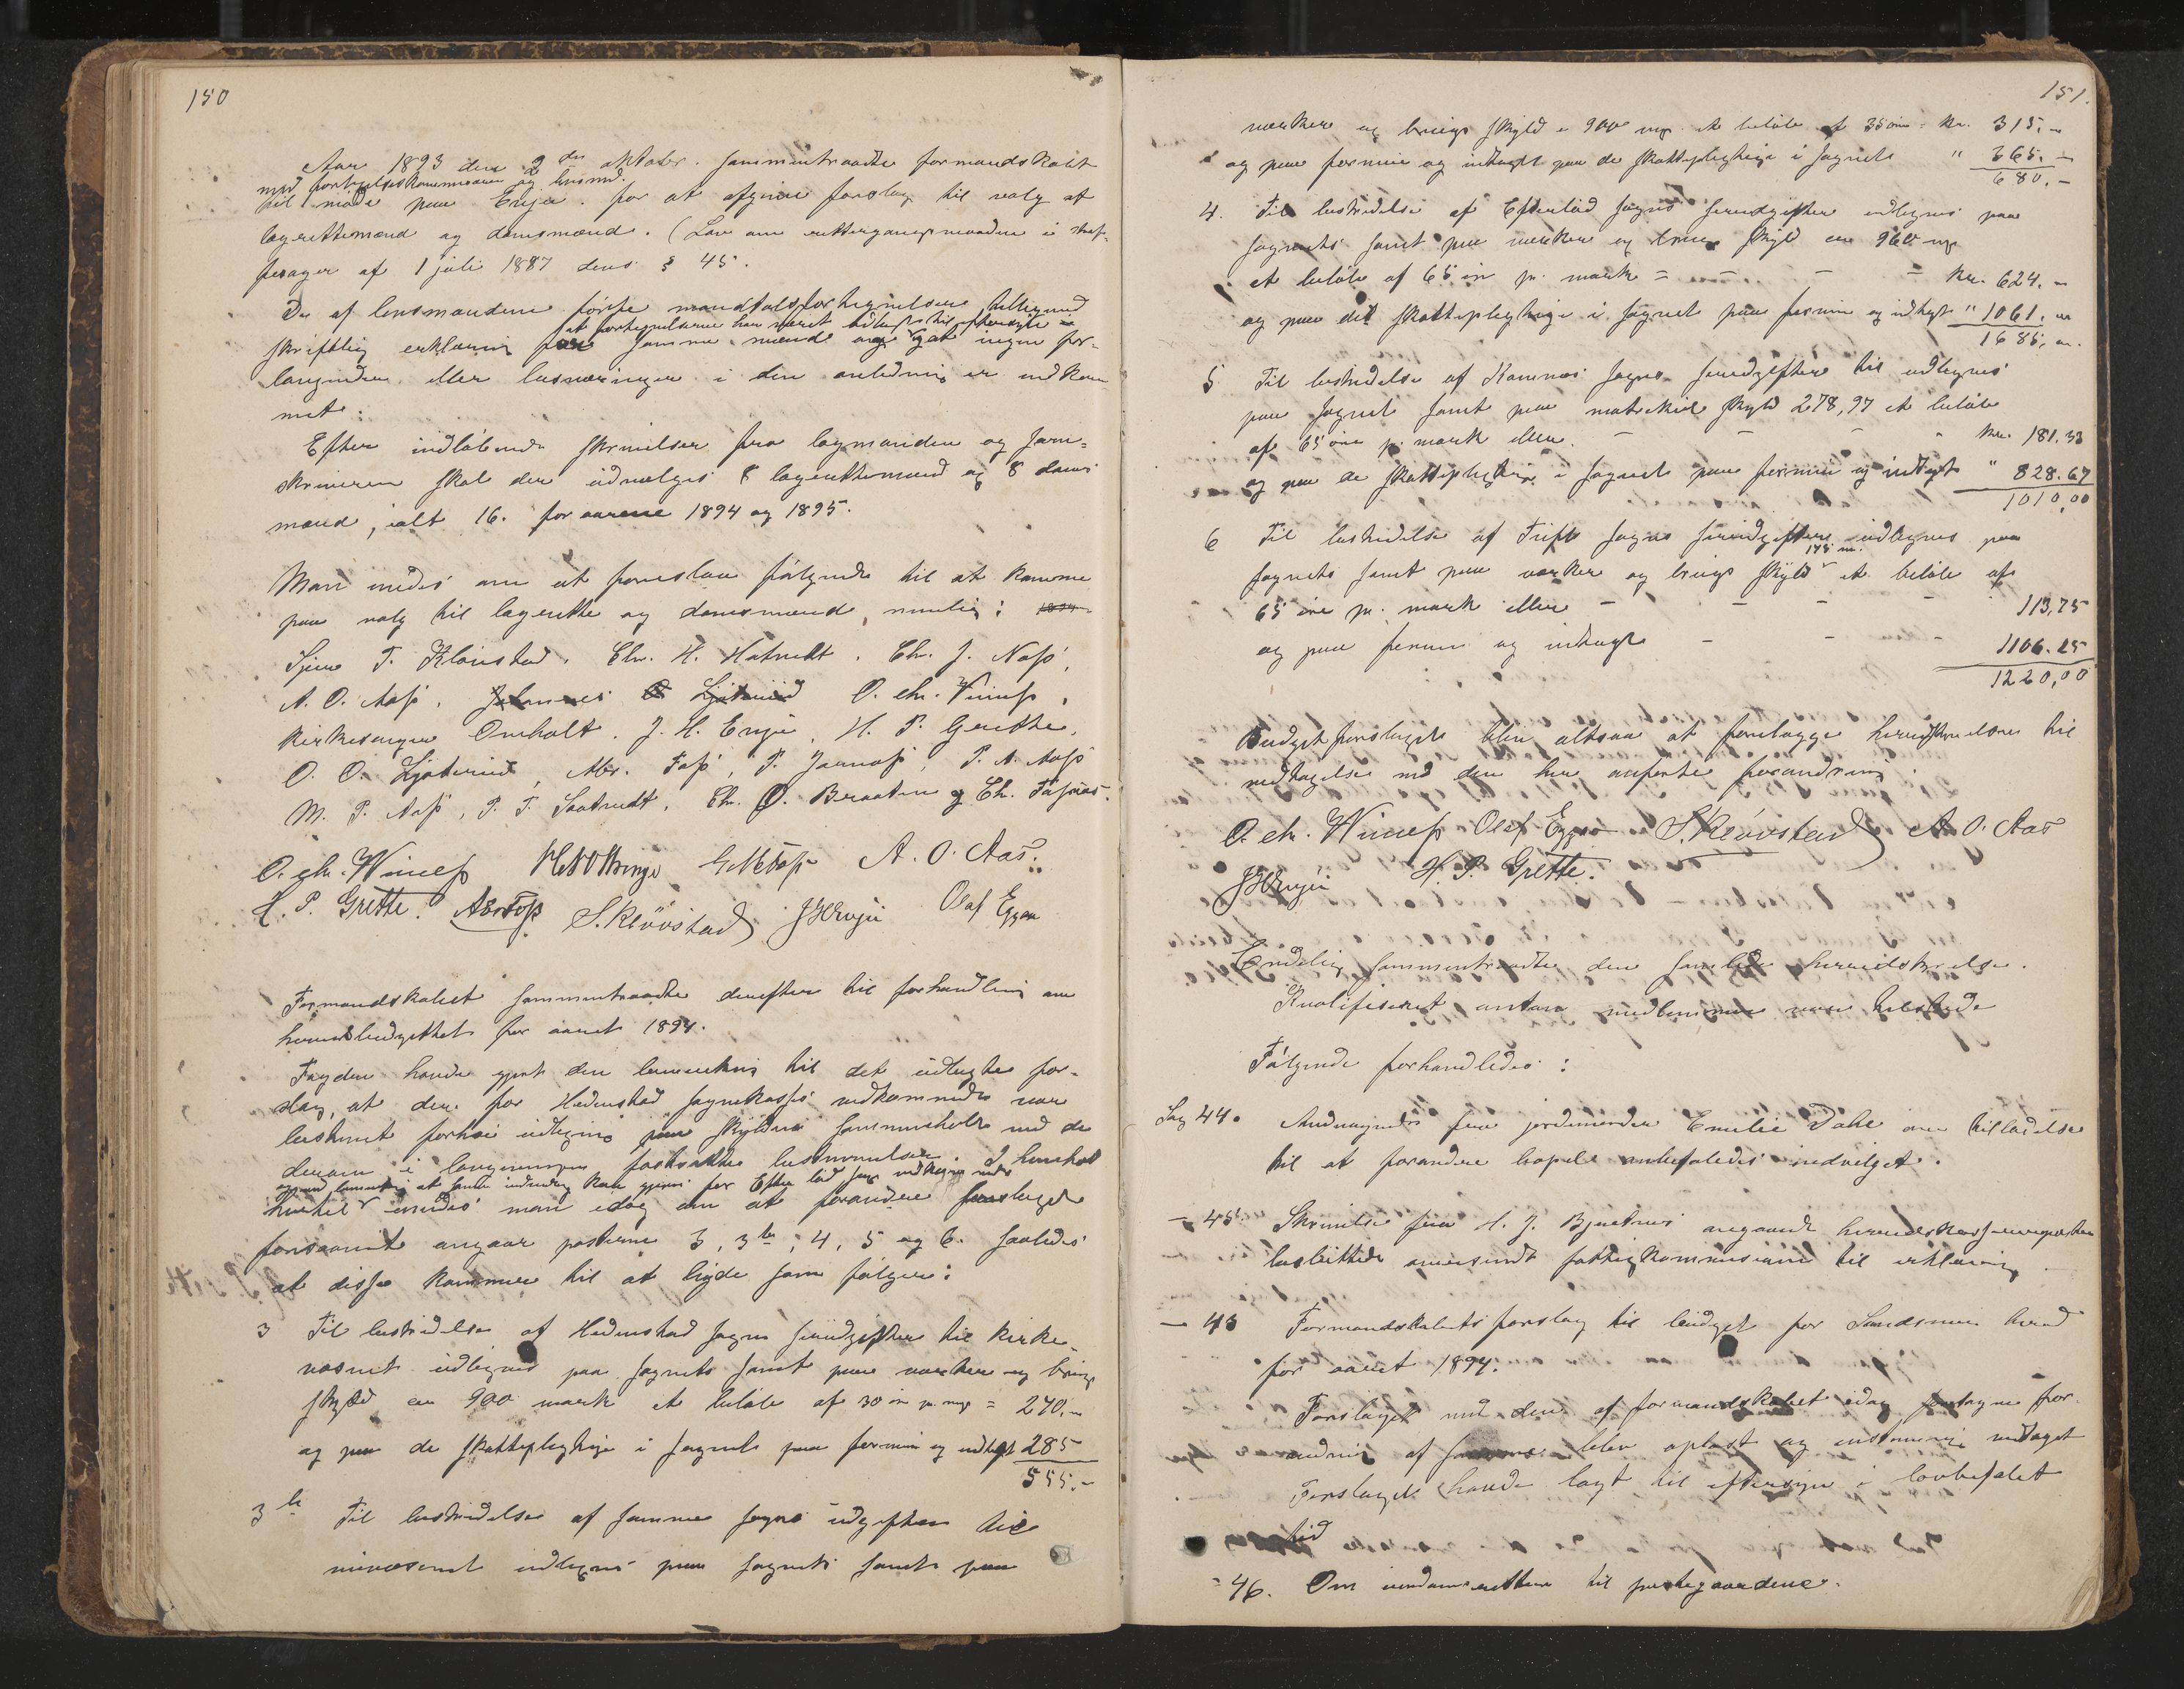 150
Aar 1893 den 2den oktober. sammentraadte formandskabet
med fortegnelseskommissionen og lensmd.
til møde paa Enge. for at afgive forslag til valg af
lagrettemænd og domsmænd. (Lov om rettergangsmaaden i straf-
fesager af 1 juli 1887 dens § 45.
De af lensmanden førte mandtalsfortegnelser, tilligemed
at fortegnelserne har været udlagt til eftersyn
skriftlig erklæring fra samme mænd og at ingen for-
langender eller besværinger i den anledning er indkom
met:
Efter indløbende skrivelser fra lagmanden og soren-
skriveren skal der udvælges 8 lagrettemænd og 8 doms
mænd, ialt 16. for aarene 1894 og 1895.
Man enedes om at foreslaa følgende til at komme
paa valg til lagrette og domsmænd, nemlig:
T. Kløvstad. Chr. H. Hvatvedt. Ch. J. Aasß,
A. O. Aasß. Johannes O Ljøterud O. Chr. Vinnesß,
Kirkesanger Omholt. J. H. Enge. H. P. Grette,
O. O. Ljøterud, Abr. Foss, P. Jarnæss, P. A. Aasß
M. P. Aasß, P. T. Saatvedt. Chr. O. Braaten og Ch.
O. Chr. Winnesß A. O. Aas.
H. P. Grette. Abr Foss S. Kløvstad J H Enge Olaf Eggen
Formandskabet sammentraadte derefter til forhandling om
herredsbudgettet for aaret 1894.
Fogden havde gjort den bemærkning til det udlagte for-
slag, at der for Hedenstad sognekasses vedkommende var
bestemt forhøi udligning paa skylden sammenholdt med de
derom i lovgivningen fastsatte bestemmelser. I henhold
og med bemærkning at samme indvending kan gjøres for Efteløds sogns vedkommende
hertil enedes man idag om at forandre forslaget
forsaavidt angaar posterne 3, 3b, 4, 5 og 6. saaledes
at disse kommer til at lyde som følger:
3 Til bestridelse af Hedenstad sogns udgifter til kirke-
væsenet udlignes paa sognets samt paa værker og brugs
skyld ca 900 mark et beløb af 30 øre pr. mrk = 270,-
og paa de skattepligtige i sognet paa formue og indtægt 285
555.-
3 b Til bestridelse af samme sogns udgifter til
veivæsenet udlignes paa sognets samt paa
151.
værker og brugs skyld ca 900 mrk. et beløb af 35 øre = kr. 315.-
og paa formue og indtægt paa de skattepligtige i sognet " 365.-
680.-
4. Til bestridelse af Efteløds sogns udgifter udlignes paa
sognets samt paa værker og brugs skyld ca 960 mrk
et beløb af 65 øre pr. mark = - - - kr. 624.-
og paa de skattepligtige i sognet paa formue og indtægt " 1061.-
1685,-
5 Til bestridelse af Komnes sogns udgifter til udlignes
paa sognet samt paa matrikul skyld 278,97 et beløb
af 65 øre pr. mark eller. - - - kr. 181.33
og paa de skattepligtige i sognet paa formue og indtægt " 828.67
1010,00
6 Til bestridelse af Tufts sogns udgifter udlignes paa
175 m.
sognets samt paa værker og brugs skyld et beløb af
65 øre pr. mark eller - - - - 113,75
og paa formue og indtægt - - - 1106.25
1220,00
Budgetforslaget blir altsaa at forelægge herredsstyrelsen til
vedtagelse med den her anførte forandring.
O. Chr. Winnesß Olaf Eggen S. Kløvstad A. O. Aas
J H Enge H. P. Grette.
Endelig sammentraadte den samlede herredsstyrelse.
Kvalifiseret antal medlemmer var tilstede
Følgende forhandledes:
Sag 44. Andragende fra jordemoder Emilie Dahl om tilladelse
til at forandre bopæl anbefaledes indvilget.
- 45. Skrivelse fra H. J. angaaende
besluttedes oversendt fattigkommissionen til erklæring.
- 43 Formandskabets forslag til budget for Sandsvær herred
for aaret 1894.
Forslaget med den af formandskabet idag foretagne for-
andring af blev oplæst og enstemmig vedtaget
Forslaget havde lagt til eftersyn i lovbefalet
tid
- 46. Om eiendomsretten til prestegaardene.